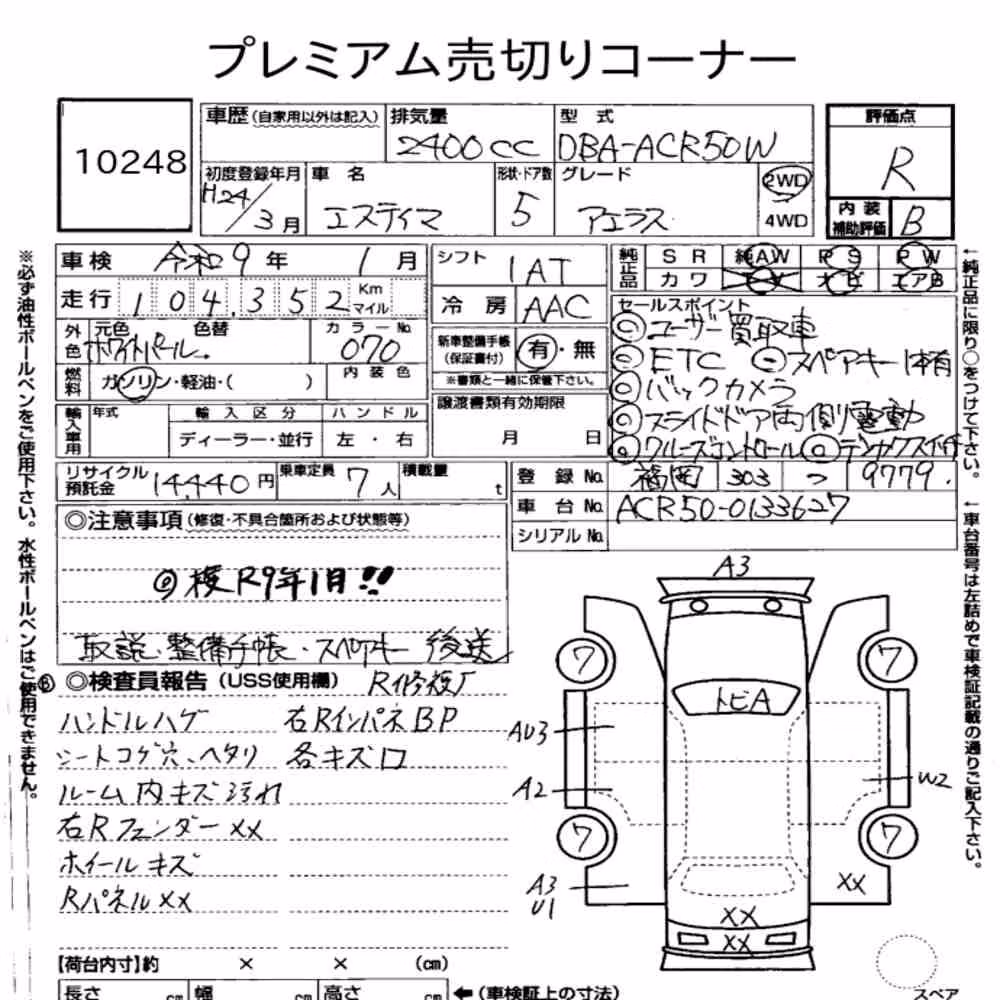 プレミアム売切りコーナー
10248
車歴(自家用以外は記入) 排気量 型式 評価点
2400cc DBA-ACR50W R
初度登録年月 車名 形状・ドア数 グレード 2WD
H24/3月 エスティマ 5 アエラス 4WD 内装補助評価 B
車検 令和9年1月 シフト 1AT 純正品 SR 純AW PS PW
走行 104,352 Km マイル 冷房 AAC カワ エアB
外色 元色 色替 カラーNo. 新車整備手帳(保証書付) 有・無 セールスポイント
ホワイトパール 070 ※書類と一緒に保管下さい。 ◎ユーザー買取車
燃料 ガソリン・軽油・( ) 内装色 譲渡書類有効期限 ◎ETC ◎スペアキー1本有
輸入車用 年式 輸入区分 ハンドル ◎バックカメラ
ディーラー・並行 左・右 月 日 ◎スライドドア両側電動
◎クルーズコントロール
リサイクル預託金 14,440円 乗車定員 7人 積載量 t 登録No. 福岡 303 つ 9779
◎注意事項(修復・不具合箇所および状態等) 車台No. ACR50-0133627
シリアルNo.
◎検R9年1月!!
取説・整備手帳・スペアキー 後送
◎検査員報告(USS使用欄) R修復歴
ハンドルハゲ 右RインパネBP
シートコゲ穴、ヘタリ 各キズ
ルーム内キズ汚れ
右Rフェンダーxx
ホイールキズ
Rパネルxx
【荷台内寸】約 × × (cm)
長さ cm 幅 cm 高さ cm ←(車検証上の寸法)
A3
7 7
トビA
AU3
A2 W2
7 7
A3 U1 XX
XX
XX
スペア
※必ず油性ボールペンをご使用下さい。水性ボールペンはご使用できません。
←純正品に限り○をつけて下さい。
←車台番号は左詰めで車検証記載の通りご記入下さい。